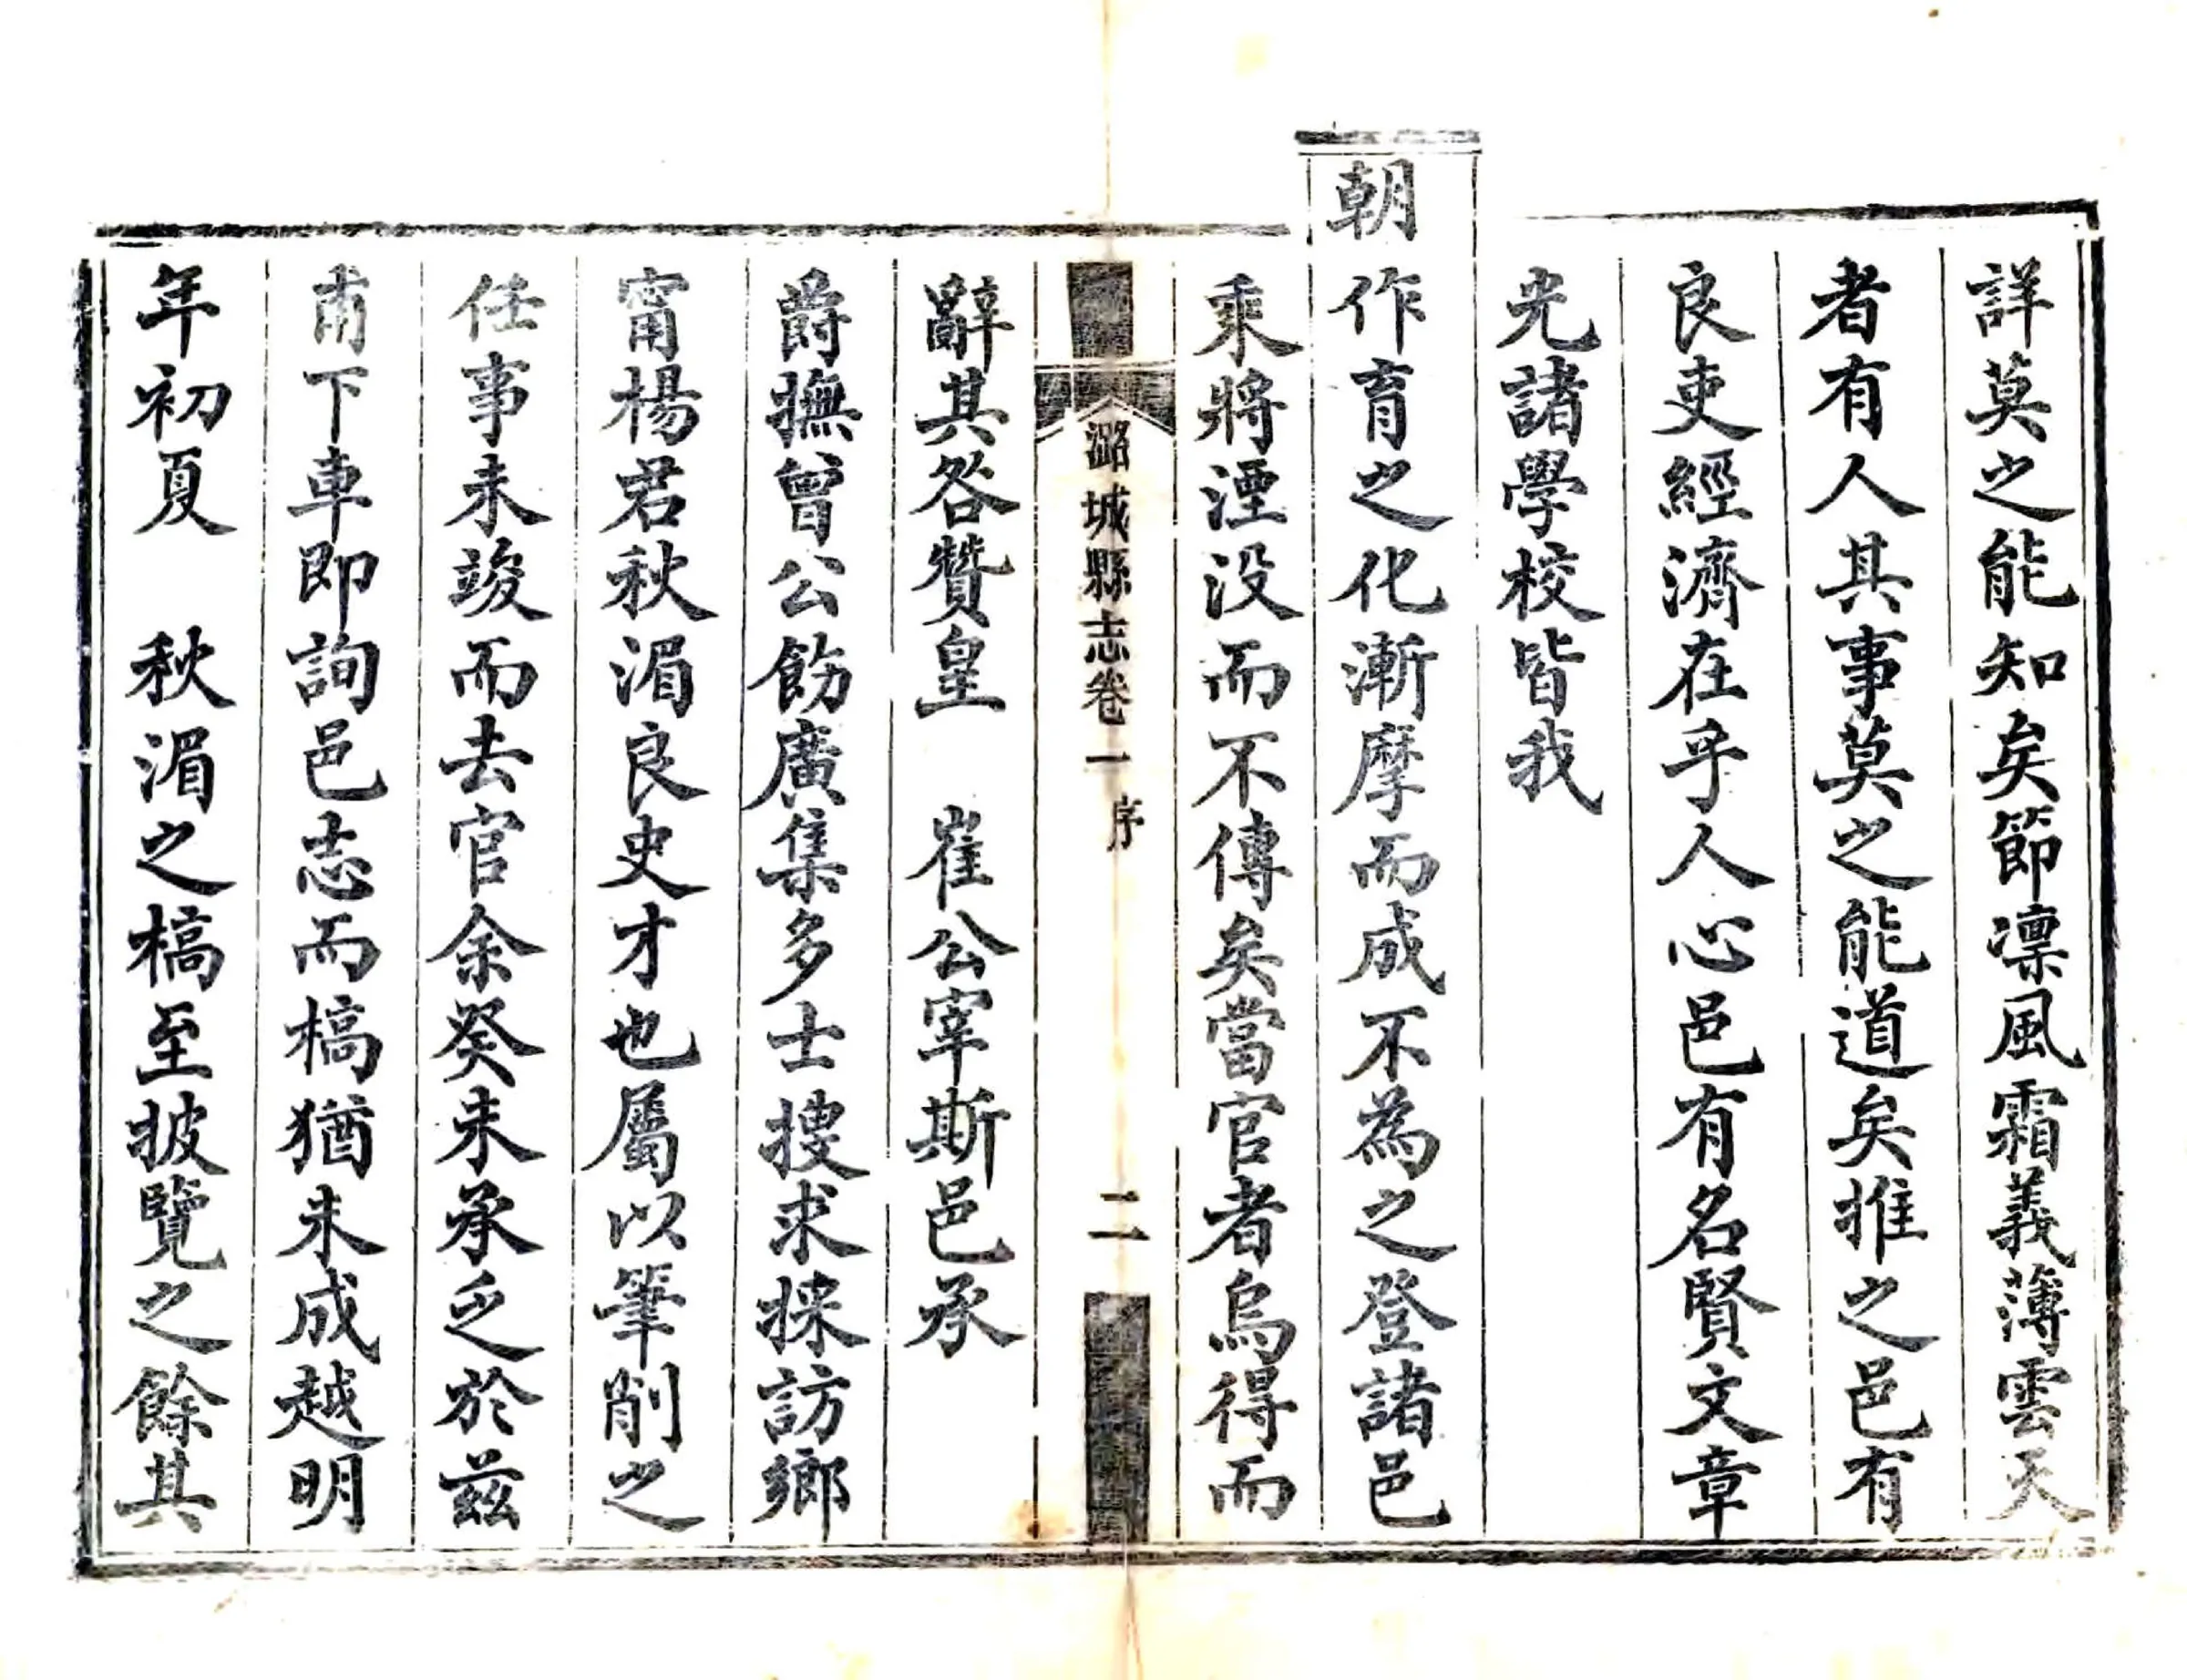 詳莫之能知矣節凛風霜義薄雲天
者有人其事莫之能道矣推之邑有
良吏經濟在乎人心邑有名賢文章
光諸學校皆我
朝作育之化漸摩而成不為之登諸邑
乘將湮没而不傳矣當官者烏得而
潞城縣志卷一 序 二
辭其咎贊皇 崔公宰斯邑承
爵撫曾公飭廣集多士搜求採訪鄉
甯楊君秋湄良史才也屬以筆削之
任事未竣而去官余癸未承乏於兹
甫下車即詢邑志而槁猶未成越明
年初夏 秋湄之槁至披覽之餘其